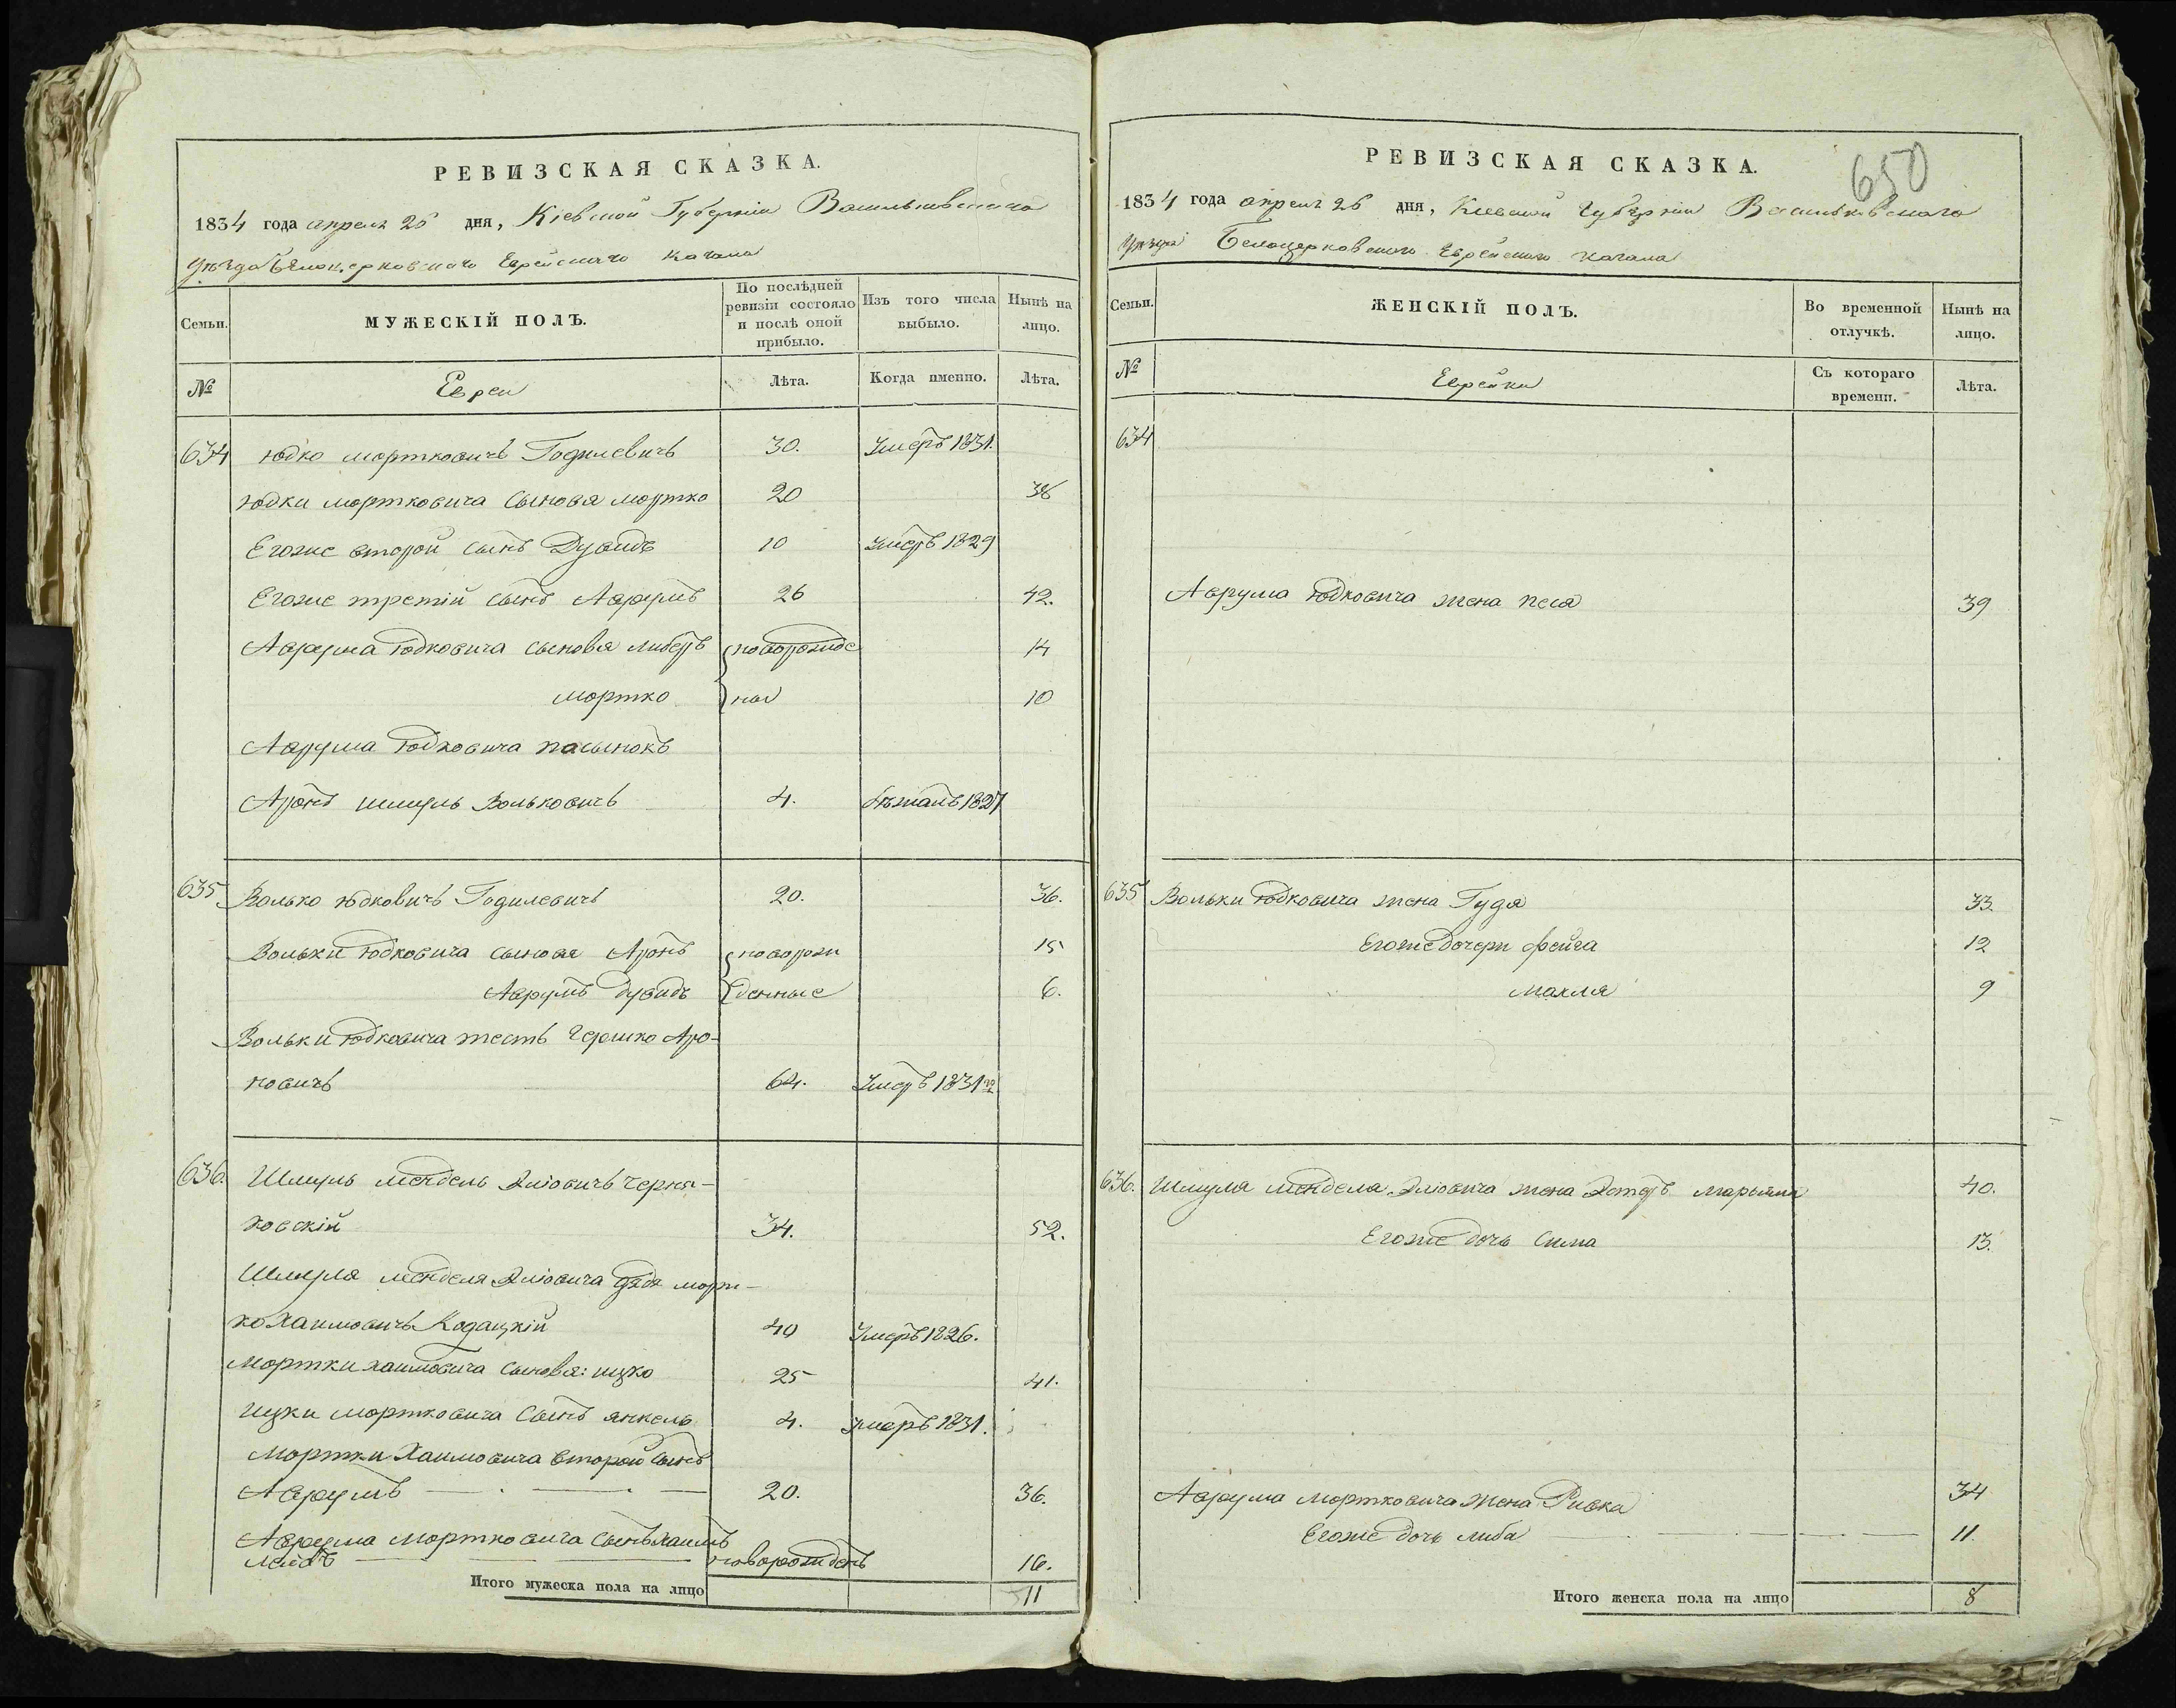 РЕВИЗСКАЯ СКАЗКА.
1834 года апреля 26 дня, Кіевской Губерніи Васильковскаго
Уѣзда Бѣлоцерковскаго Еврейскаго Кагала
Семьи.
МУЖЕСКІЙ ПОЛЪ.
По послѣдней ревизіи состояло и послѣ оной прибыло.
Изъ того числа выбыло.
Нынѣ на лицо.
№
Евреи
Лѣта.
Когда именно.
Лѣта.
634 Юдко Мортковичъ Годилевичъ 30. Умеръ 1831.
Юдки Мортковича сыновя Мортко 20 36
Егоже второй сынъ Дувидъ 10 Умеръ 1829
Егоже третій сынъ Аврумъ 26 42.
Аврума Юдковича сыновя Либеръ новорожде 14
Мортко ны 10
Аврума Юдковича пасынокъ
Аронъ Шмуль Вольковичъ 4. бѣжалъ 1827
635 Волько Юдковичъ Годилевичъ 20. 36.
Вольки Юдковича сыновя Аронъ новорож 15
Аврумъ Дувидъ денные 6.
Вольки Юдковича тесть Гершко Аро-
новичъ 64. Умеръ 1831го
636. Шмуль Мендель Эліовичъ Черня-
ховскій 34. 52.
Шмуля Менделя Эліовича дядя Морт-
ко Хаимовичъ Кодацкій 40 Умеръ 1826.
Мортки Хаимовича сыновя: Ицко 25 41.
Ицки Мортковича сынъ Янкель 4. Умеръ 1831.
Мортки Хаимовича второй сынъ
Аврумъ 20. 36.
Аврума Мортковича сынъ Хаимъ
новорожденъ 16.
Итого мужеска пола на лицо 11
РЕВИЗСКАЯ СКАЗКА.
650
1834 года апреля 26 дня, Киевской Губерніи Васильковскаго
Уѣзда Белоцерковскаго Еврейскаго Кагала
Семьи.
ЖЕНСКІЙ ПОЛЪ.
Во временной отлучкѣ.
Нынѣ на лицо.
№
Еврейки
Съ котораго времени.
Лѣта.
634
Аврума Юдковича жена Песя 39
635 Вольки Юдковича жена Гудя 33
Егоже дочери Фейга 12
Махля 9
636. Шмуля Мендела Эліовича жена Эстеръ Марьямя 40.
Егоже дочь Сима 13.
Аврума Мортковича жена Ривка 34
Егоже дочь Либа 11.
Итого женска пола на лицо 8